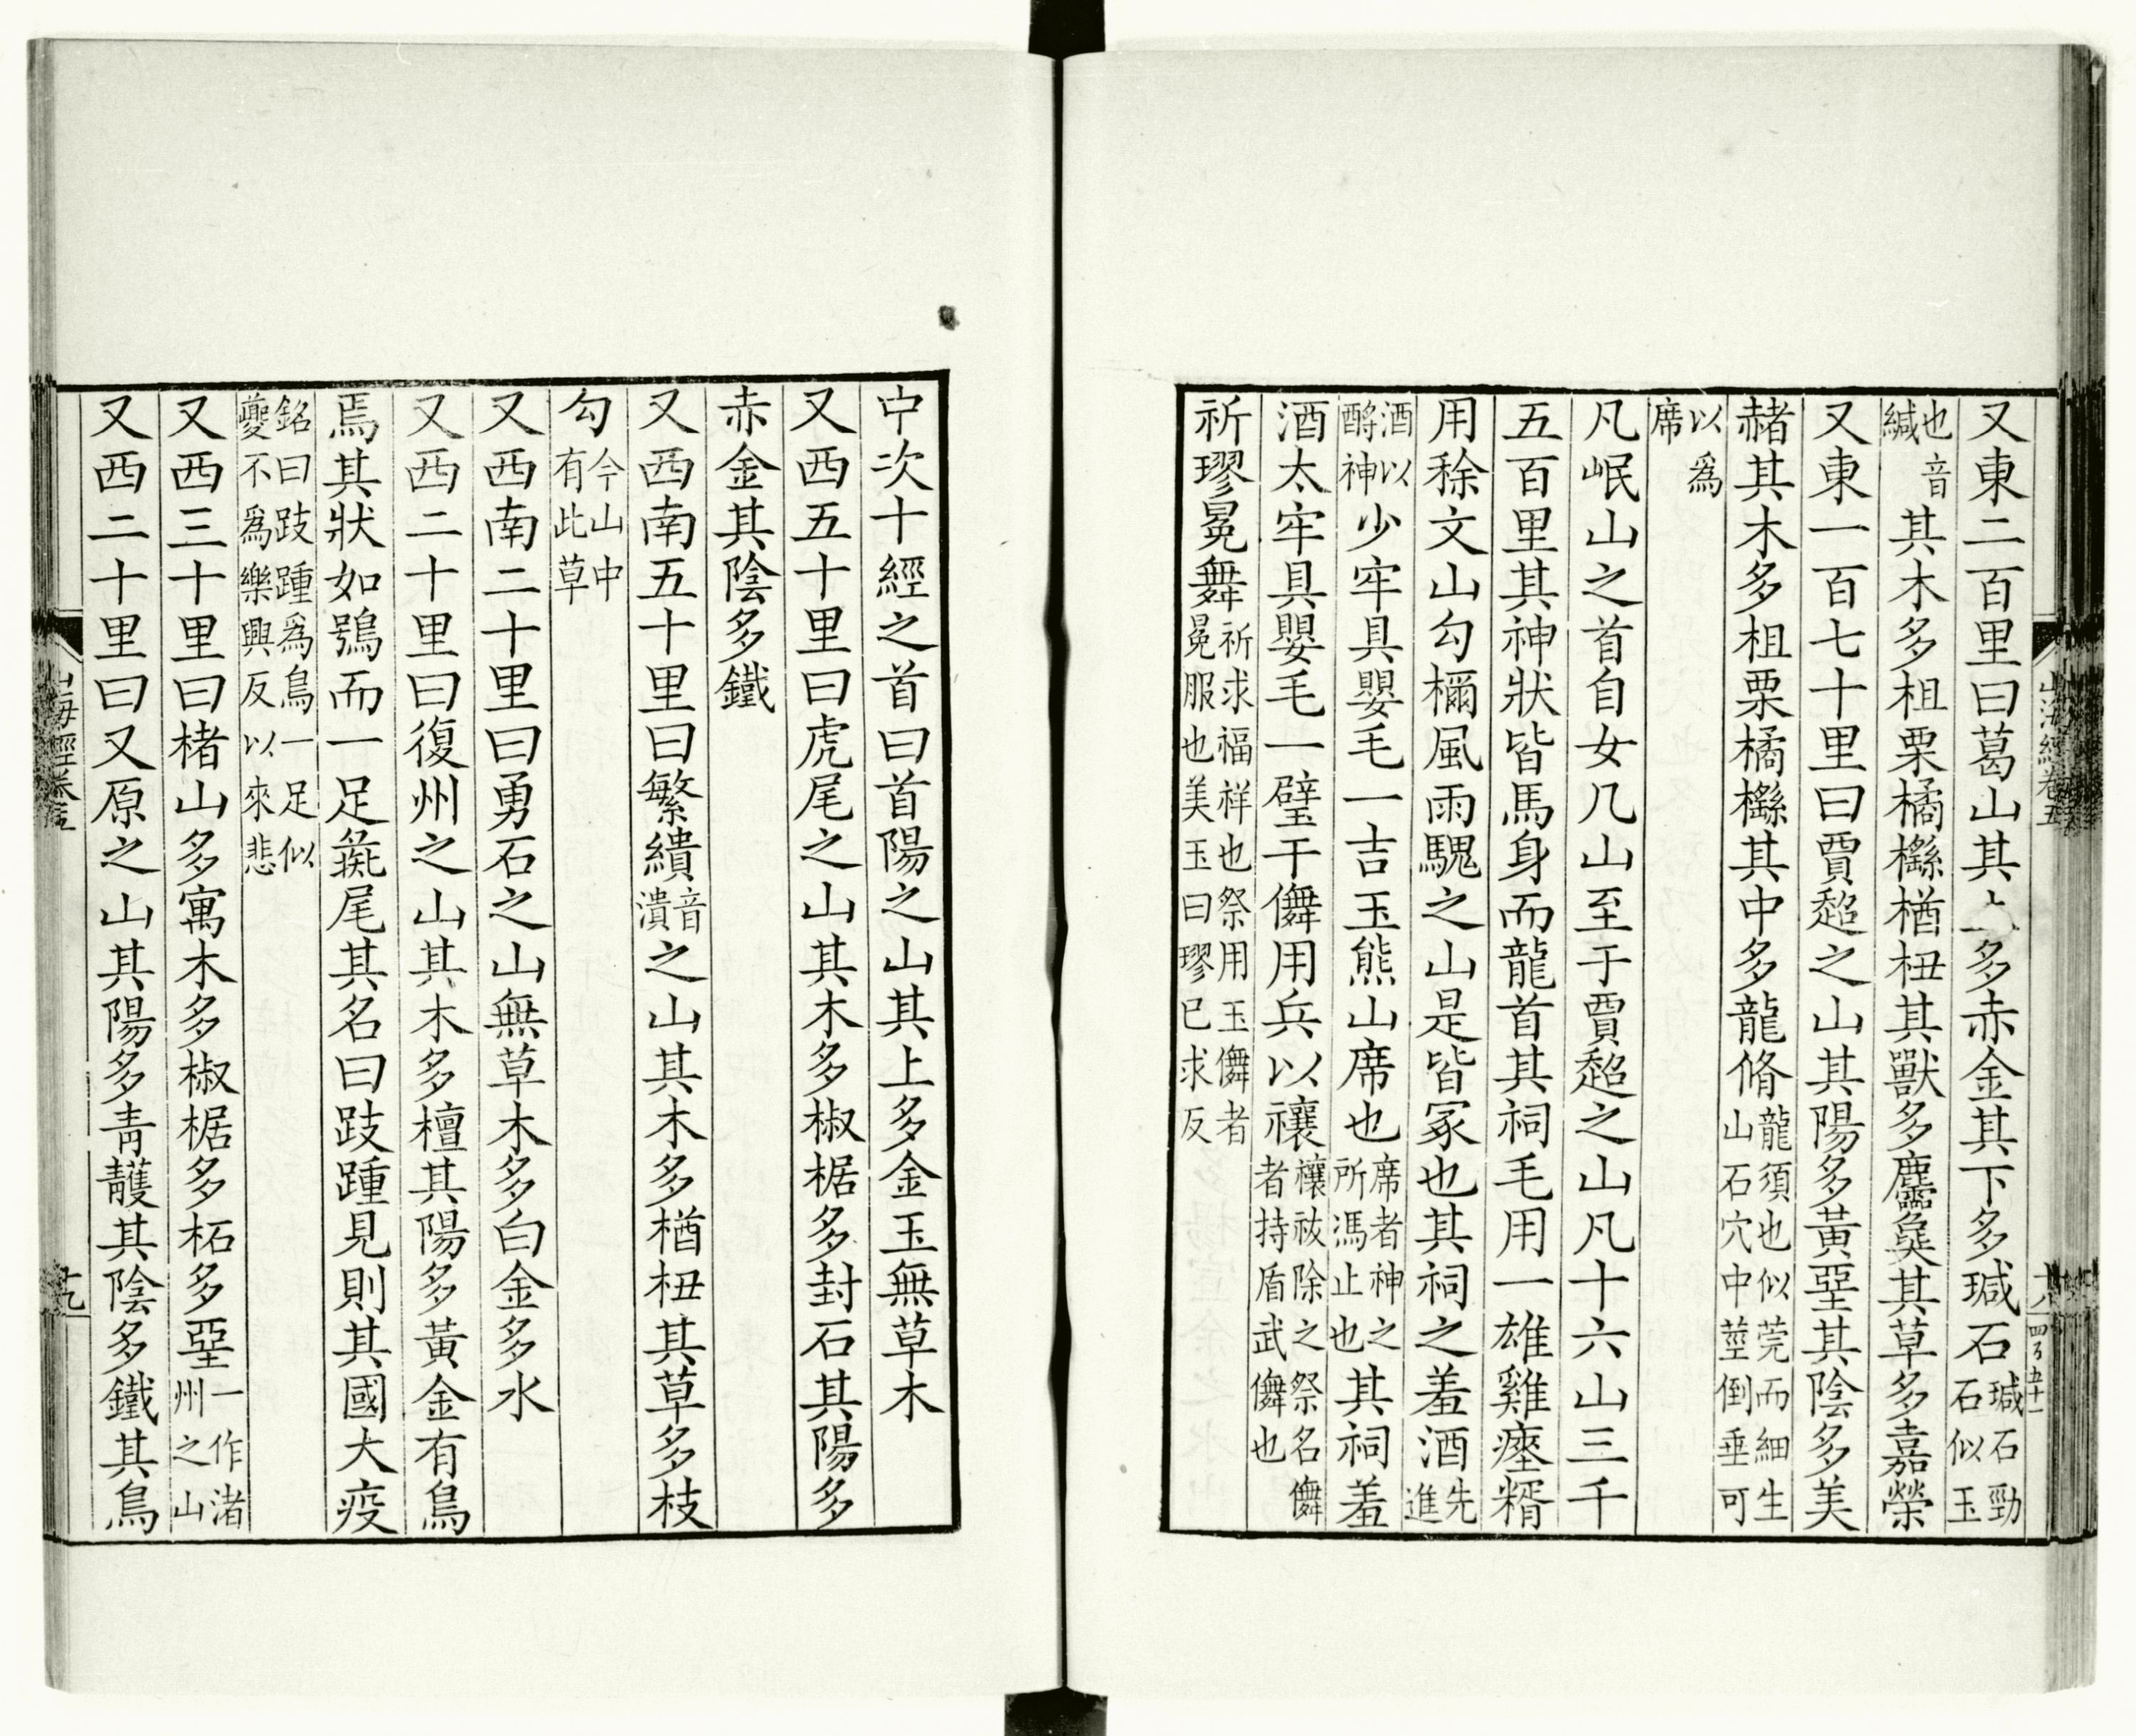 又東二百里曰葛山其上多赤金其下多瑊石瑊石勁石似玉
也音緘其木多柤栗橘櫾楢杻其獸多麢㚟其草多嘉榮
又東一百七十里曰賈超之山其陽多黃堊其陰多美
赭其木多柤栗橘櫾其中多龍脩龍須也似莞而細生山石穴中莖倒垂可
以爲席
凡岷山之首自女几山至于賈超之山凡十六山三千
五百里其神狀皆馬身而龍首其祠毛用一雄雞瘞糈
用稌文山勾檷風雨騩之山是皆冢也其祠之羞酒先進
酒以酹神少牢具嬰毛一吉玉熊山席也席者神之所馮止也其祠羞
酒太牢具嬰毛一璧干儛用兵以禳禳祓除之祭名儛者持盾武儛也
祈璆冕舞祈求福祥也祭用玉儛者冕服也美玉曰璆已求反
山海經卷五
十八
四百五十一
中次十經之首曰首陽之山其上多金玉無草木
又西五十里曰虎尾之山其木多椒椐多封石其陽多
赤金其陰多鐵
又西南五十里曰繁繢音潰之山其木多楢杻其草多枝
勾今山中有此草
又西南二十里曰勇石之山無草木多白金多水
又西二十里曰復州之山其木多檀其陽多黃金有鳥
焉其狀如鴞而一足彘尾其名曰跂踵見則其國大疫
銘曰跂踵爲鳥一足似夔不爲樂興反以來悲
又西三十里曰楮山多寓木多椒椐多柘多堊一作渚州之山
又西二十里曰又原之山其陽多青雘其陰多鐵其鳥
山海經卷五
十九